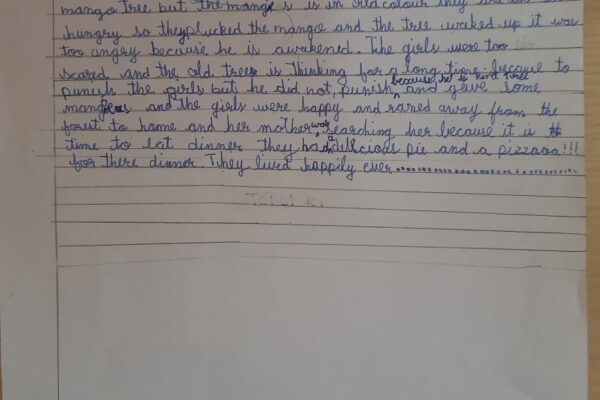 mango tree but the mango s is in red colour they are
hungry so theyplucked the mango and the tree waked up it was
too angry because he is awakened. The girls were too
scared and the old tree is thinking for a long time because to
because he is kind tree
punish the girls but he did not punish and gave some
mangoes and the girls were happy and raned away from the
forest to home and her mother was searching her because it is
time to eat dinner they had a delicious pie and a pizzaaa!!!
for there dinner. They lived happily ever....................